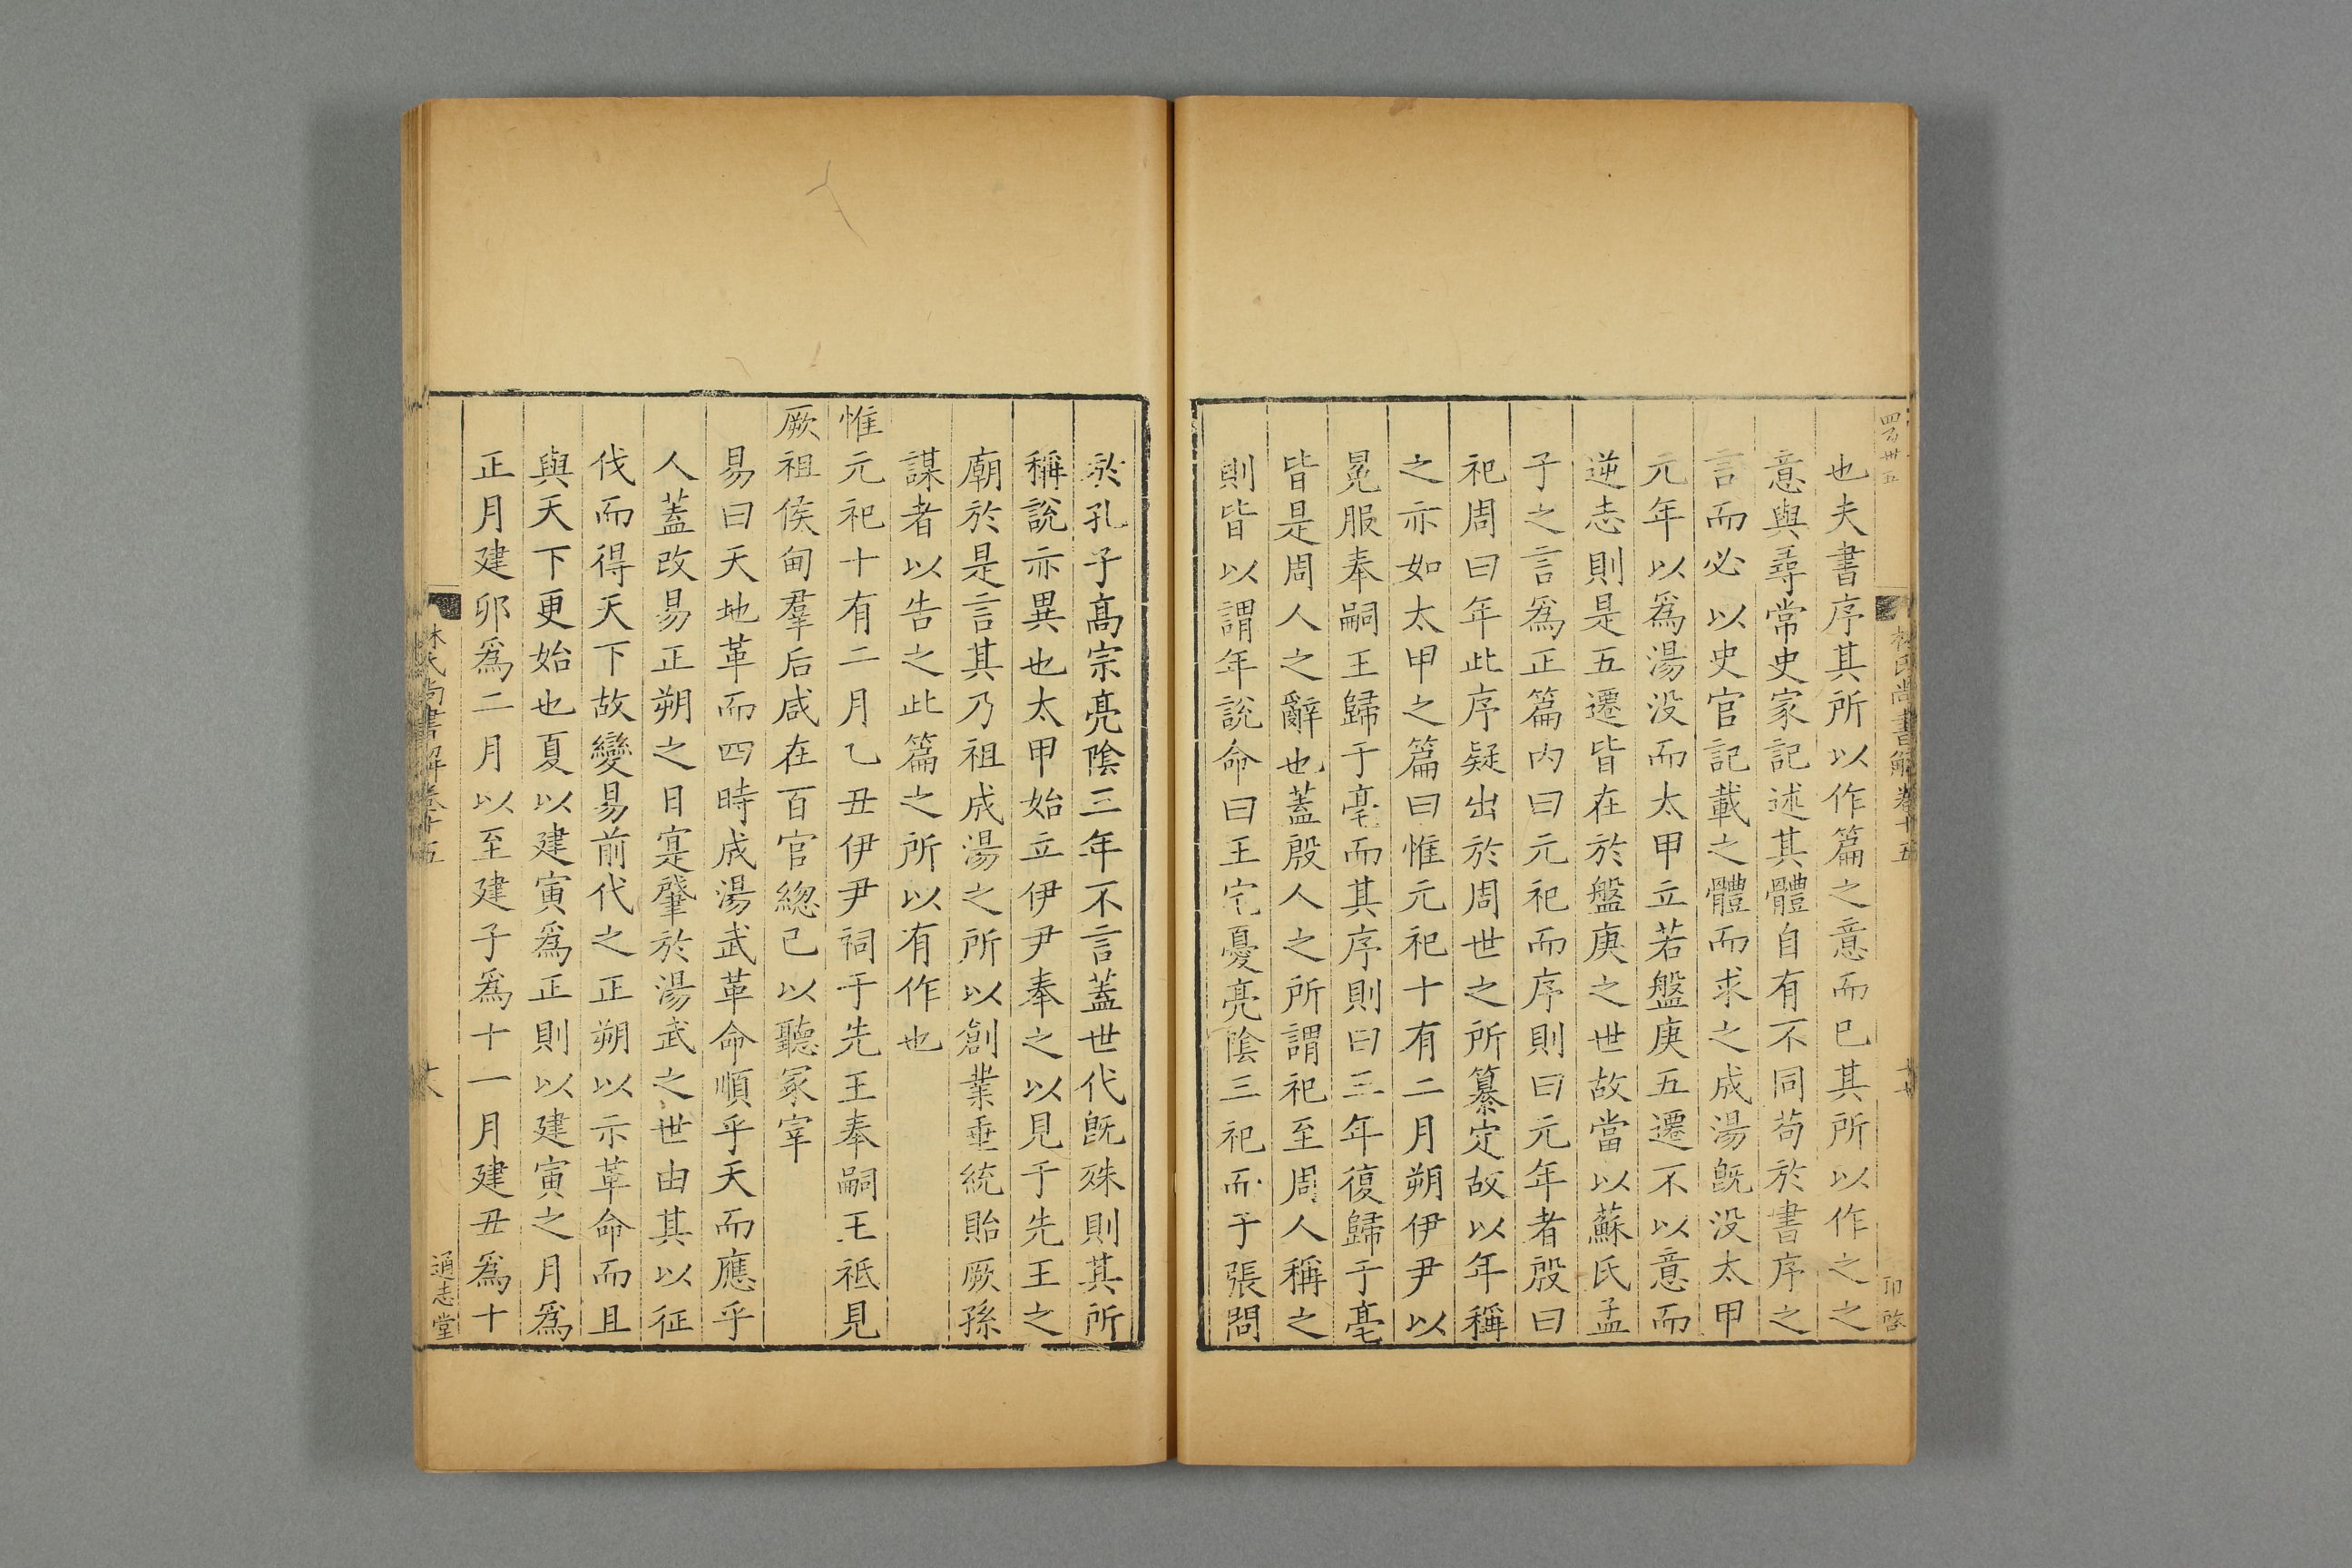 也夫書序其所以作篇之意而巳其所以作之之
意與尋常史家記述其體自有不同苟於書序之
言而必以史官記載之體而求之成湯旣没太甲
元年以爲湯没而太甲立若盤庚五遷不以意而
逆志則是五遷皆在於盤庚之世故當以蘇氏孟
子之言爲正篇内曰元祀而序則曰元年者殷曰
祀周曰年此序疑出於周世之所纂定故以年稱
之亦如太甲之篇曰惟元祀十有二月朔伊尹以
冕服奉嗣王歸于亳而其序則曰三年復歸于亳
皆是周人之辭也蓋殷人之所謂祀至周人稱之
則皆以謂年說命曰王宅憂亮陰三祀而子張問
於孔子高宗亮陰三年不言蓋世代旣殊則其所
稱說亦異也太甲始立伊尹奉之以見于先王之
廟於是言其乃祖成湯之所以創業垂統貽厥孫
謀者以告之此篇之所以有作也
惟元祀十有二月乙丑伊尹祠于先王奉嗣王祗見
厥祖侯甸羣后咸在百官緫己以聽冢宰
易曰天地革而四時成湯武革命順乎天而應乎
人蓋改易正朔之日寔肇於湯武之世由其以征
伐而得天下故變易前代之正朔以示革命而且
與天下更始也夏以建寅爲正則以建寅之月爲
正月建卯爲二月以至建子爲十一月建丑爲十
林氏尚書解卷十五
通志堂